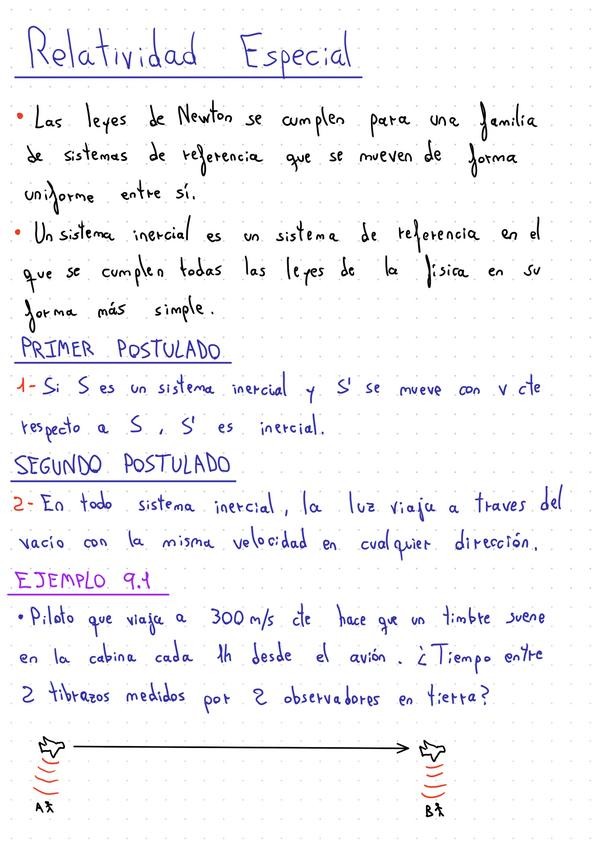 Relatividad Especial
• Las leyes de Newton se cumplen para una familia
de sistemas de referencia que se mueven de forma
uniforme entre sí.
• Un sistema inercial es un sistema de referencia en el
que se cumplen todas las leyes de la física en su
forma más simple.
PRIMER POSTULADO
1- Si S es un sistema inercial y S' se mueve con v cte
respecto a S, S' es inercial.
SEGUNDO POSTULADO
2- En todo sistema inercial, la luz viaja a traves del
vacío con la misma velocidad en cualquier dirección.
EJEMPLO 9.1
• Piloto que viaja a 300 m/s cte hace que un timbre suene
en la cabina cada 1h desde el avión. ¿Tiempo entre
2 tibrazos medidos por 2 observadores en tierra?
A B